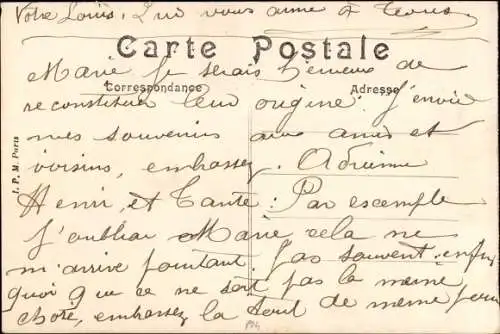 Votre Louis. Qui vous aime à tous
Carte Postale
Marie. Je serais heureux de
Correspondance
Adresse
reconstituer leur origine. J'envoie
mes souvenirs aux amis et
voisins, embrassez. Adrienne
Henri, et Tante : Par exemple
J'oubliai Marie cela ne
m'arrive pourtant pas souvent. enfin
quoi que ce ne soit pas la même
chose, embrassez la tout de même pour
I. P. M. Paris